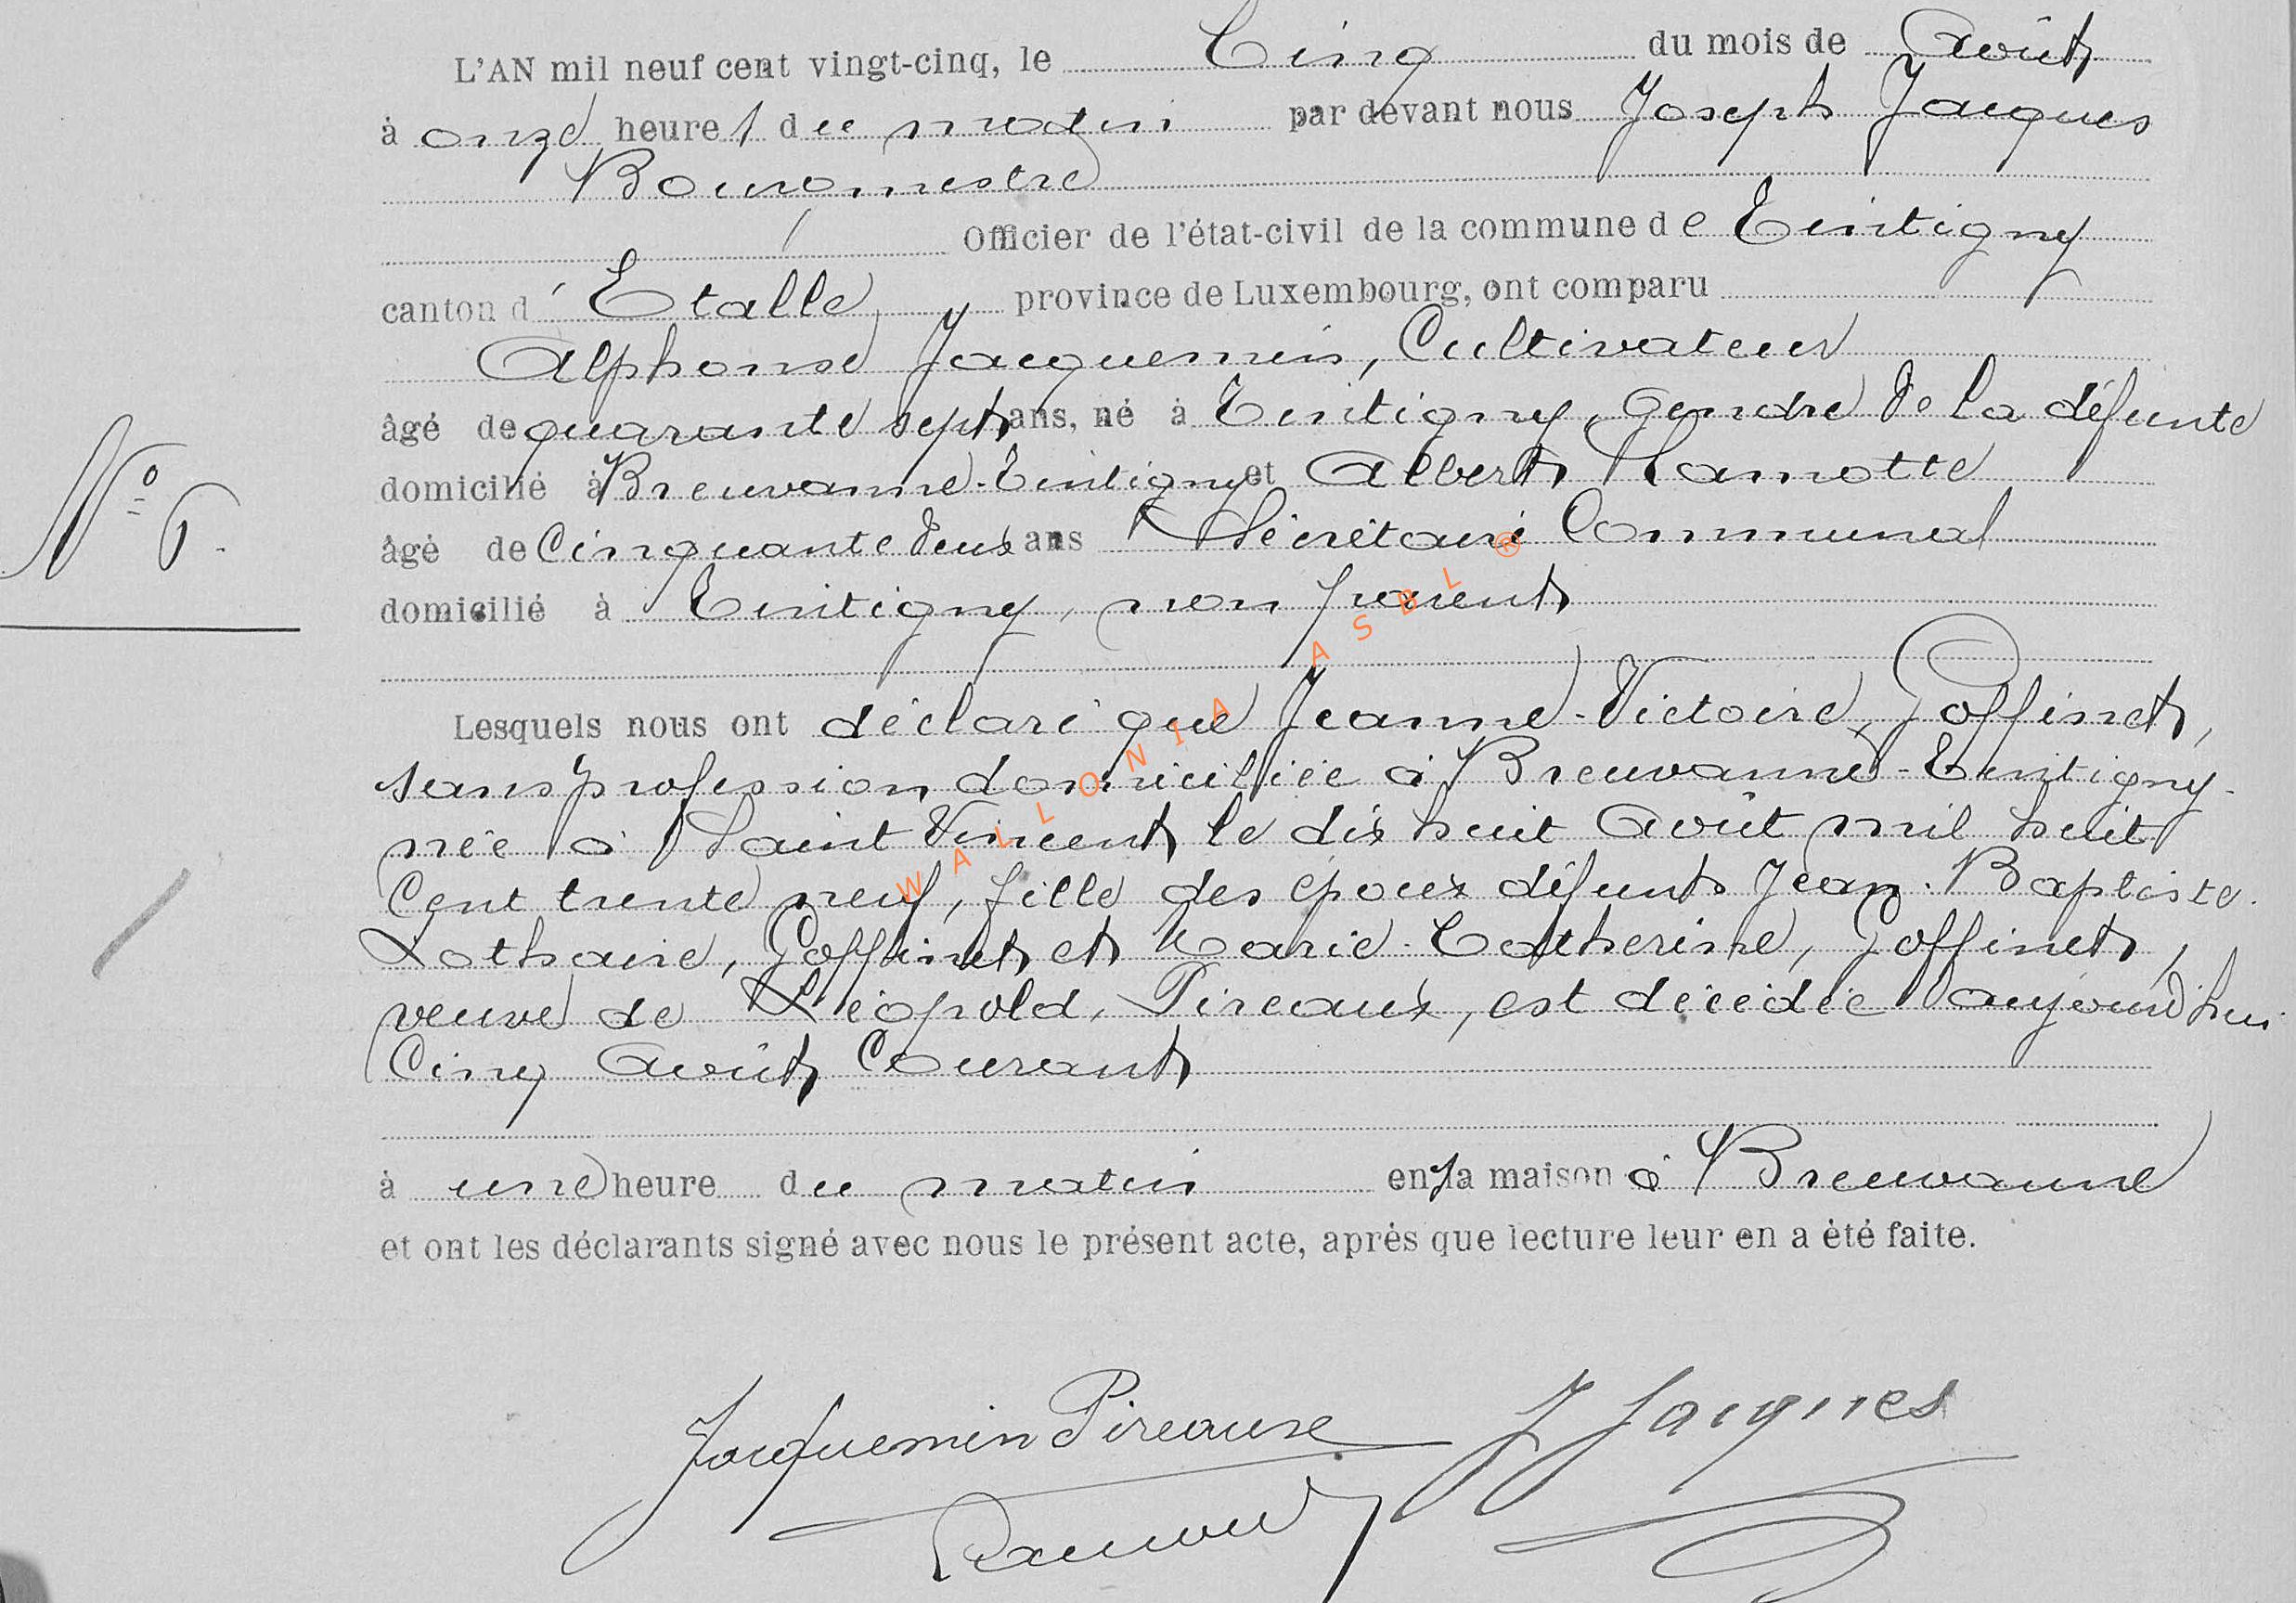 L'AN mil neuf cent vingt-cinq, le Cinq du mois de Août
à onze heures du matin par devant nous Joseph Jacques
Bourgmestre
Officier de l'état-civil de la commune de Tintigny
canton d'Etalle province de Luxembourg, ont comparu
Alphonse Jacquemin, Cultivateur
âgé de quarante sept ans, né à Tintigny, gendre de la défunte
domicilié à Breuvanne-Tintigny et Albert Lamotte
N° 6.
âgé de Cinquante deux ans Sécrétaire Communal
domicilié à Tintigny, non parent
Lesquels nous ont déclaré que Jeanne-Victoire, Goffinet,
sans profession domiciliée à Breuvanne-Tintigny.
née à Saint Vincent le dix huit Août mil huit
Cent trente neuf, fille des époux défunts Jean-Baptiste.
Lothaire, Goffinet et Marie-Catherine, Goffinet,
veuve de Léopold, Pireaux, est décédée aujourd'hui
Cinq Août Courant
à une heure du matin en sa maison à Breuvanne
et ont les déclarants signé avec nous le présent acte, après que lecture leur en a été faite.
Jacquemin Pireaux J Jacques
WALLONIA ASBL ®